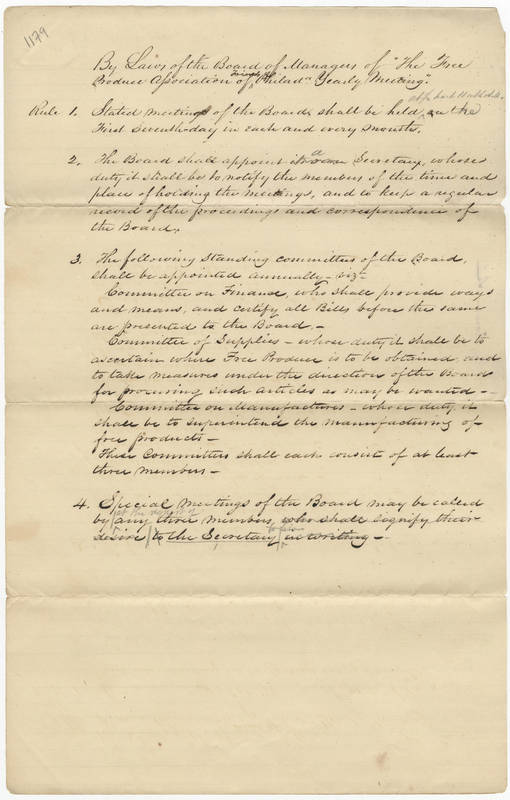 1179
By Laws of the Board of Managers of "The Free
Produce Association of Friends Philada Yearly Meeting".
Rule 1. Stated meetings of the Board shall be held, on the
First Seventh-day in each and every month.
2. The Board shall appoint a Secretary, whose
duty it shall be to notify the members of the time and
place of holding the meetings, and to keep a regular
record of the proceedings and correspondence of
the Board.
3. The following standing committees of the Board,
shall be appointed annually - viz -
Committee on Finance, who shall provide ways
and means, and certify all Bills before the same
are presented to the Board. -
Committee of Supplies - whose duty it shall be to
ascertain where Free Produce is to be obtained, and
to take measures under the direction of the Board
for procuring such articles as may be wanted -
Committee on Manufactures - whose duty it
shall be to superintend the manufacturing of
free products -
These Committees shall each consist of at least
three members -
4. Special meetings of the Board may be called
at the request of
by any three members, who shall signify their
desire to the Secretary in writing -